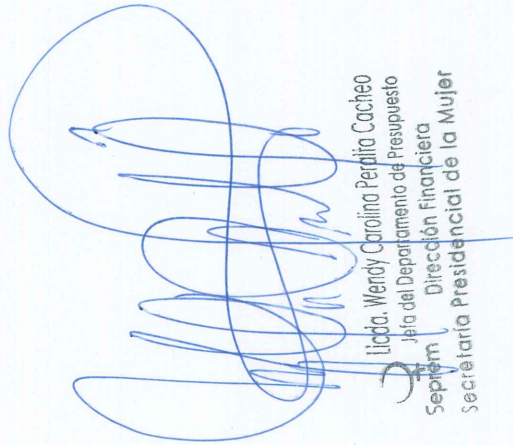 Licda. Wendy Carolina Peralta Cacheo
Jefa del Departamento de Presupuesto
Seprem Dirección Financiera
Secretaría Presidencial de la Mujer